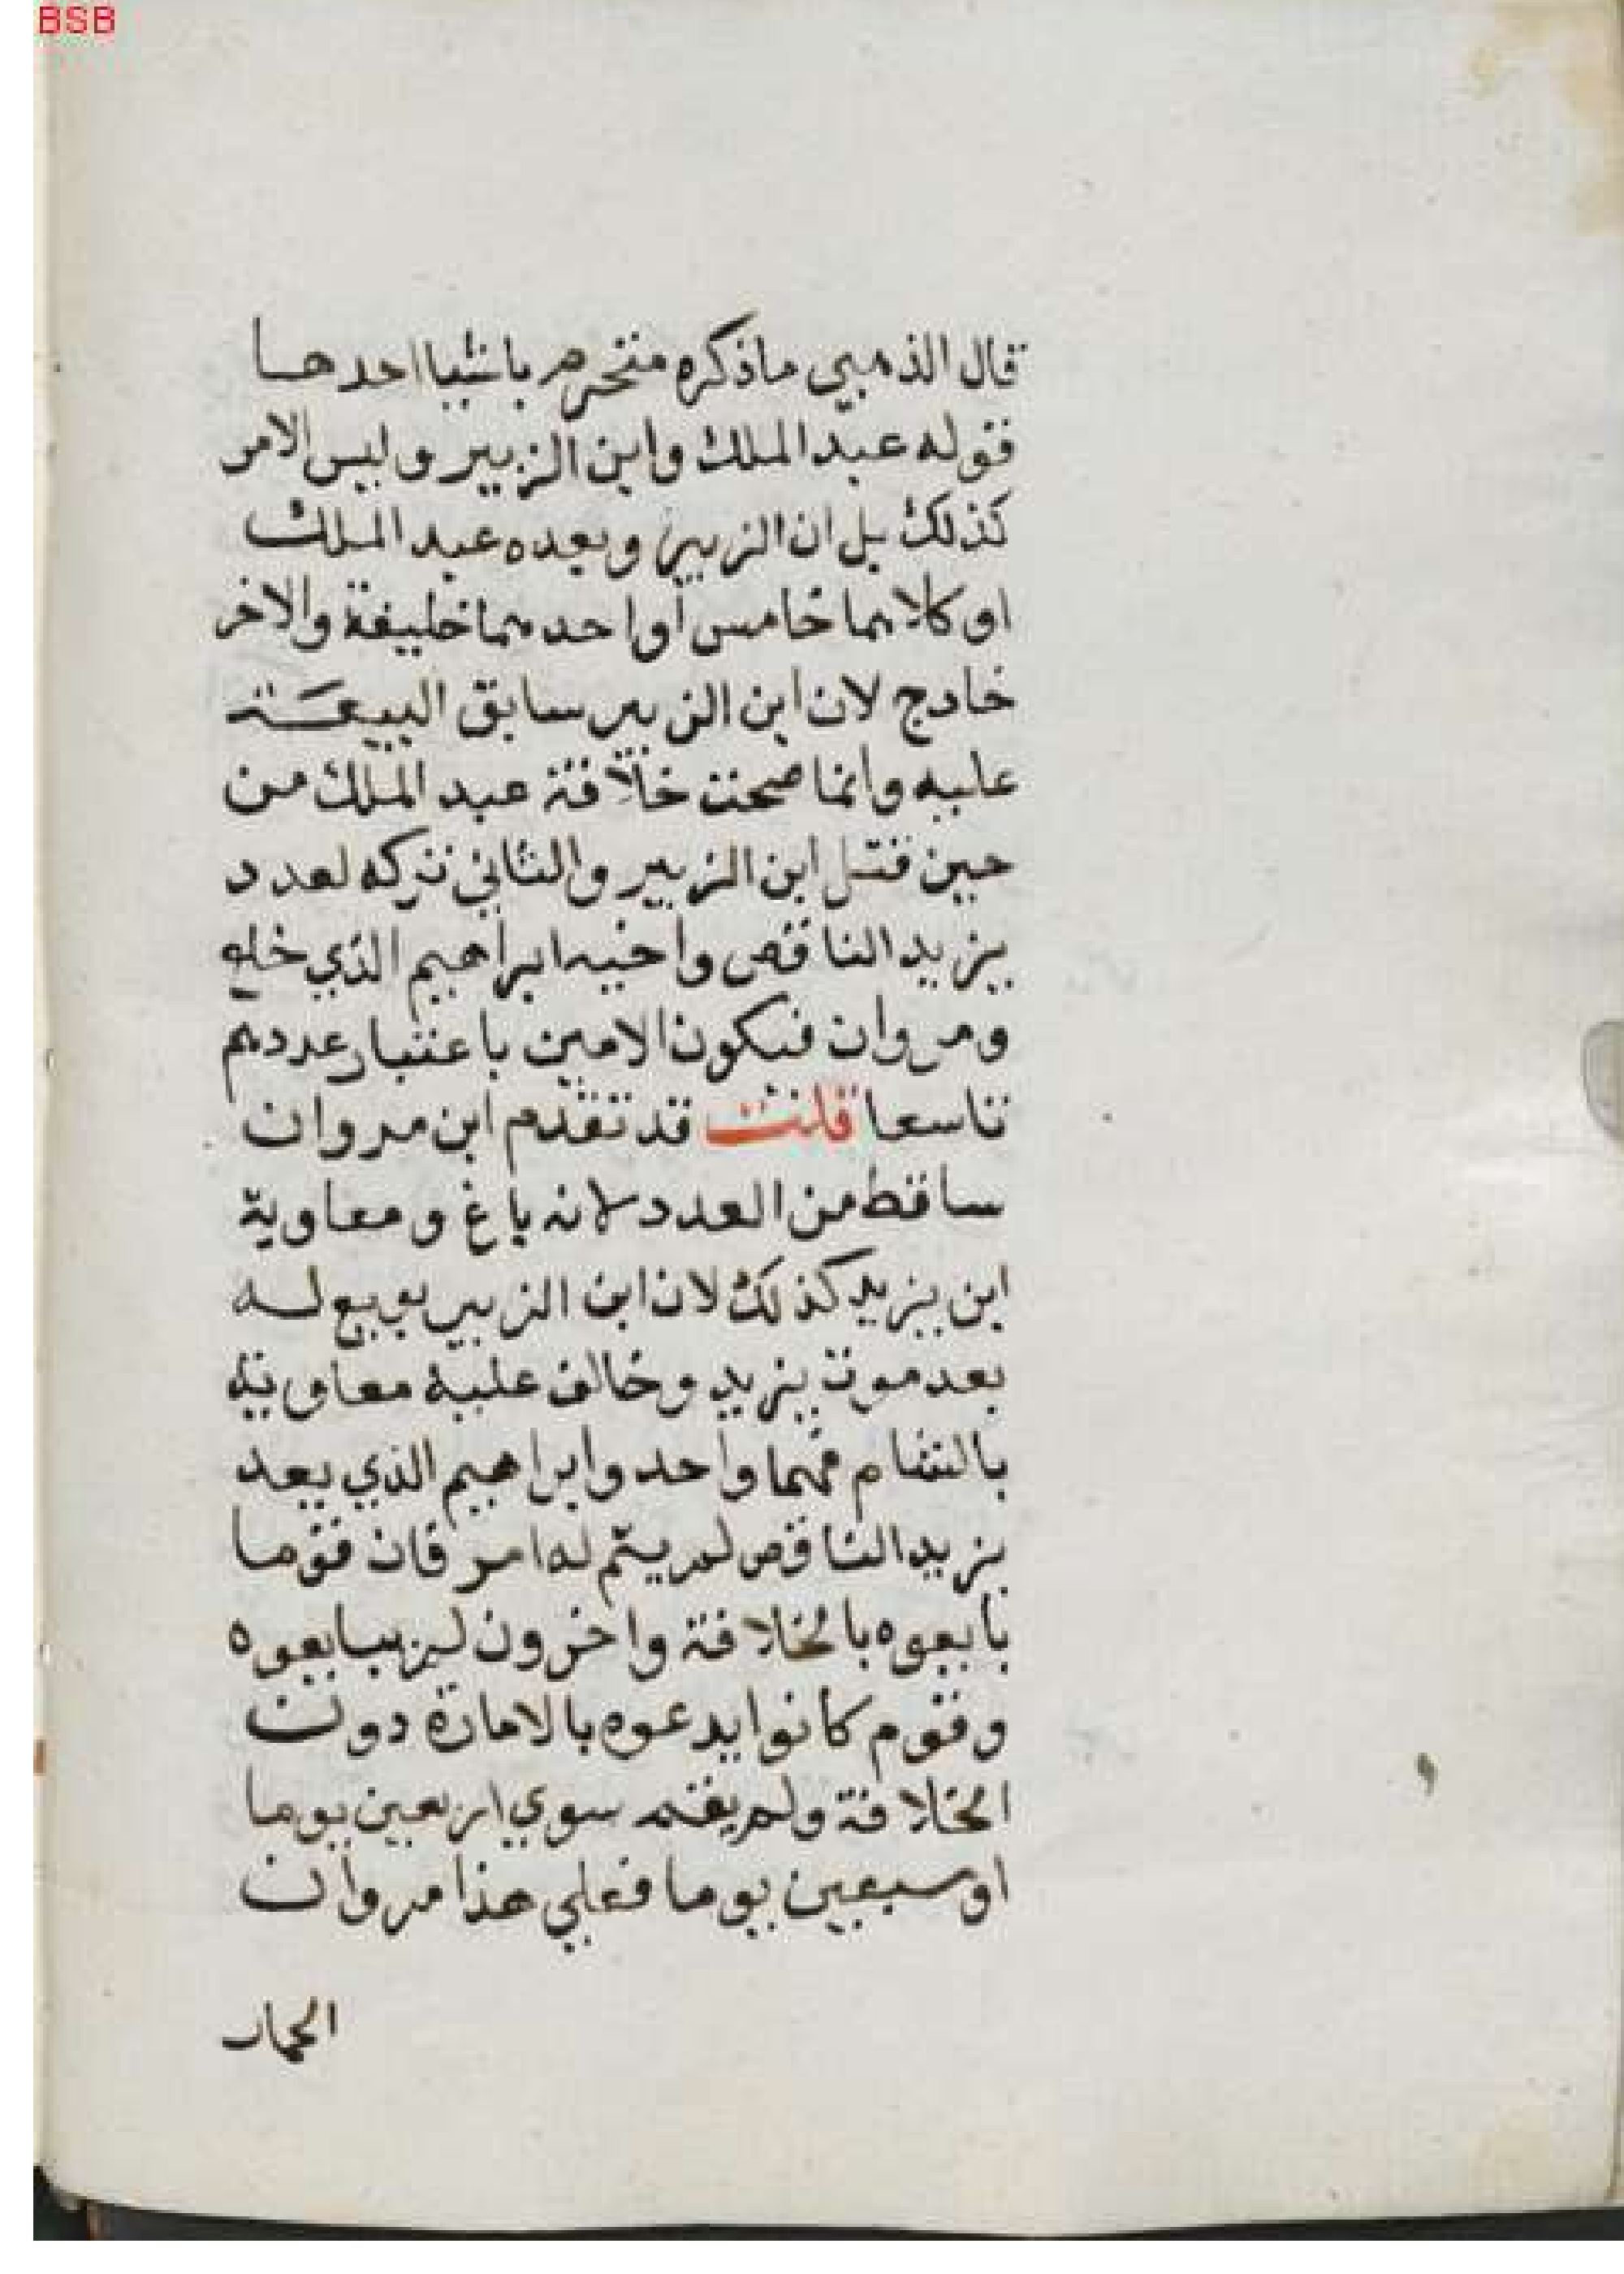 BSB
قال الذهبي ماذكره منخرم باشيا احدها
قوله عبد الملك وابن الزبير وليس الامر
كذلك بل ان الزبير وبعده عبد الملك
او كلاهما خامس او احدهما خليفة والاخر
خارج لان ابن الزبير سابق البيعة
عليه وانما صحت خلافة عبد الملك من
حين قتل ابن الزبير والثاني تركه لعدد
يزيد الناقص واخيه ابراهيم الذي خلع
ومروان فيكون الامين باعتبار عددهم
تاسعا قلت قد تقدم ابن مروان
ساقط من العدد لانه باغ ومعاوية
ابن يزيد كذلك لان ابن الزبير بويع له
بعد موت يزيد وخالف عليه معاوية
بالشام فهما واحد وابراهيم الذي بعد
يزيد الناقص لم يتم له امر فان قوما
بايعوه بالخلافة واخرون لم يبايعوه
وقوم كانوا يدعوه بالامارة دون
الخلافة ولم يقم سوي اربعين يوما
او سبعين يوما فعلي هذا مروان
الحمار